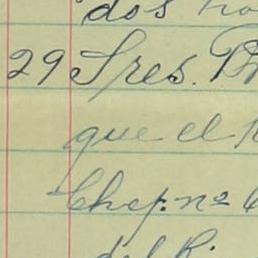 dos
29 Sres.
que el
Chep. nº
del R.